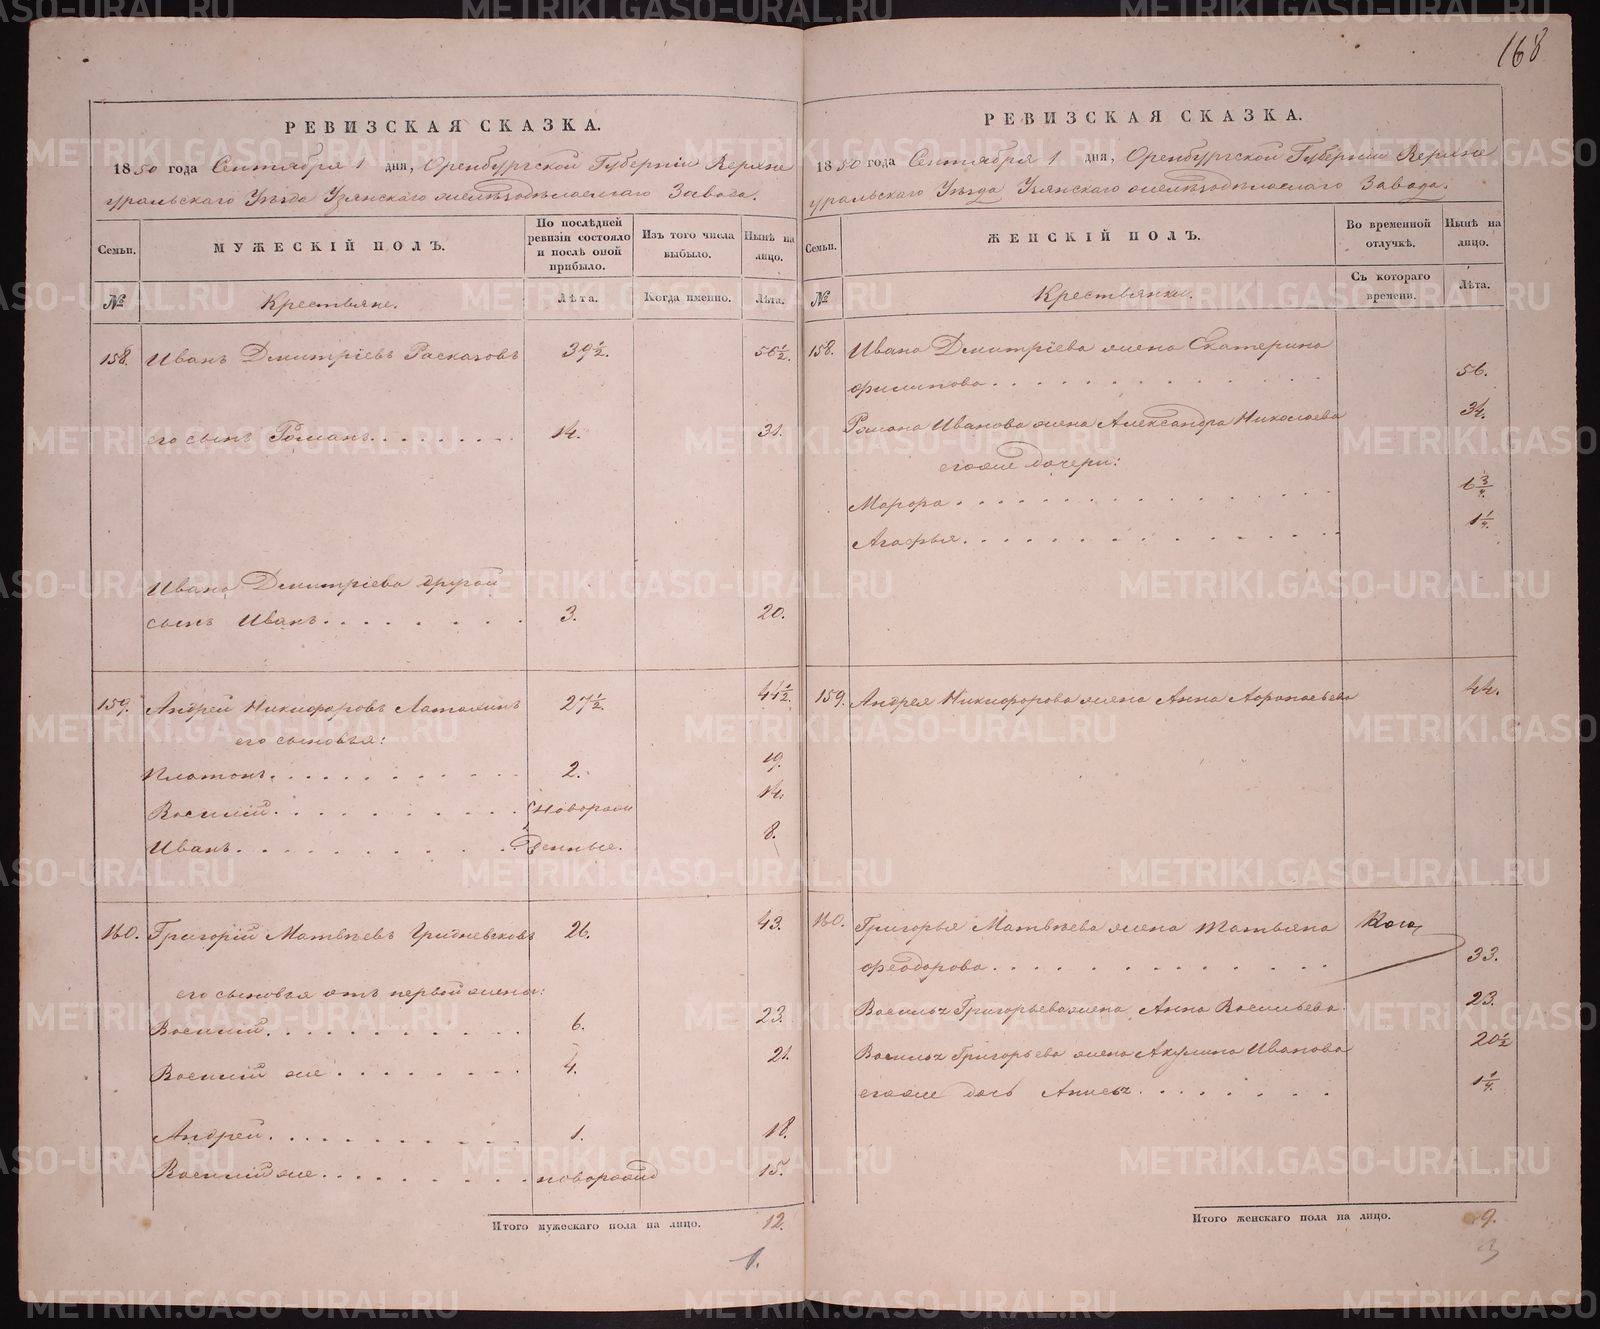 168
РЕВИЗСКАЯ СКАЗКА.
1850 года Сентября 1 дня, Оренбургской Губерніи Верхне
уральскаго Уѣзда Узянскаго желѣзодѣлаемаго Завода.
Семьи.
МУЖЕСКІЙ ПОЛЪ.
По послѣдней ревизіи состояло и послѣ оной прибыло.
Изъ того числа выбыло.
Нынѣ на лицо.
№
Крестьяне.
Лѣта.
Когда именно.
Лѣта.
158. Иванъ Дмитріевъ Расказовъ 39½. 56½.
его сынъ Романъ 14. 31.
Ивана Дмитріева другой
сынъ Иванъ 3. 20.
159. Андрей Никифоровъ Латохинъ 27½. 44½.
его сыновья:
Платонъ 2. 19.
Василій Новорож 14.
Иванъ денные. 8.
160. Григорій Матвѣевъ 26. 43.
его сыновья отъ первой жены:
Василій 6. 23.
Василій же 4. 21.
Андрей 1. 18.
Василій же новорожд 15.
Итого мужескаго пола на лицо. 12.
1.
РЕВИЗСКАЯ СКАЗКА.
1850 года Сентября 1 дня, Оренбургской Губерніи Верхне
уральскаго Уѣзда Узянскаго желѣзодѣлаемаго Завода.
Семьи.
ЖЕНСКІЙ ПОЛЪ.
Во временной отлучкѣ.
Нынѣ на лицо.
№
Крестьянки.
Съ котораго времени.
Лѣта.
158. Ивана Дмитріева жена Екатерина
Филипова 56.
Романа Иванова жена Александра Николаева 34.
его же дочери:
Мавра 6¾
Агафья 1¼
159. Андрея Никифорова жена Анна 44.
160. Григорья Матвѣева жена Татьяна
Феодорова 33.
Василья Григорьева жена Анна Васильева 23.
Василья Григорьева жена Акулина Иванова 20½
его же дочь Анисья 1¼.
Итого женскаго пола на лицо. 9.
3
METRIKI.GASO-URAL.RU